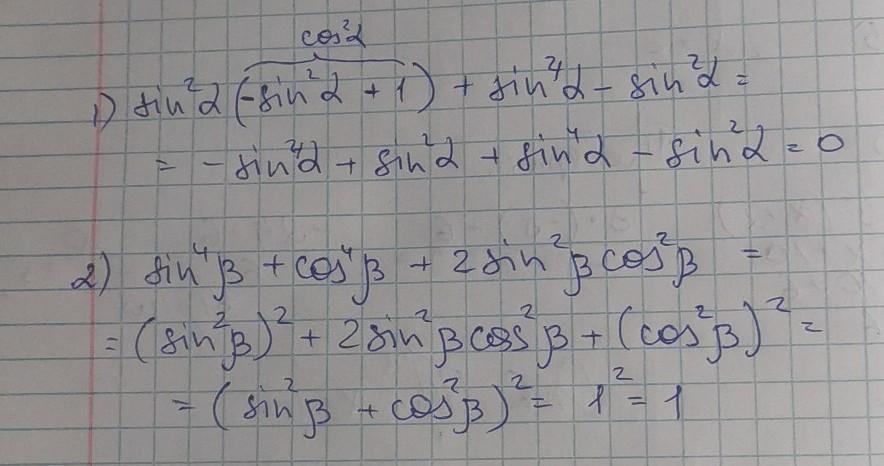 cos²α
1) sin²α(-sin²α + 1) + sin⁴α - sin²α =
= - sin⁴α + sin²α + sin⁴α - sin²α = 0
2) sin⁴β + cos⁴β + 2 sin²β cos²β =
= (sin²β)² + 2 sin²β cos²β + (cos²β)² =
= (sin²β + cos²β)² = 1² = 1